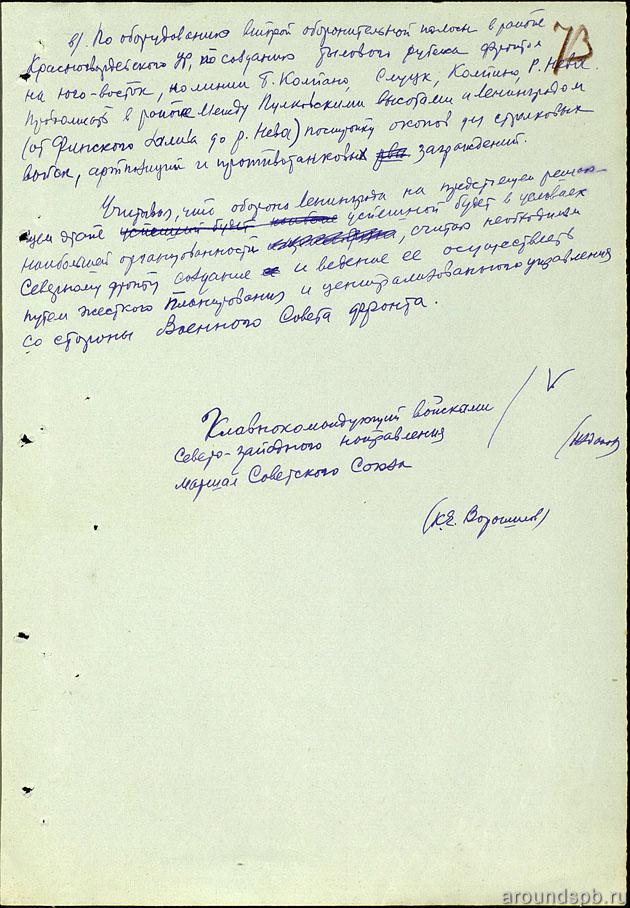 73
в). По оборудованию второй оборонительной полосы в районе
Красногвардейского УР, по созданию тылового рубежа фронтом
на юго-восток, по линии Колпано, Слуцк, Колпино, р. Нева.
Продолжать в районе между Пулковскими высотами и Ленинградом
(от Финского залива до р. Нева) постройку окопов для стрелковых
войск, артпозиций и противотанковых рвы заграждений.
Учитывая, что оборона Ленинграда на предстоящем решаю-
щем этапе успешной будет наиболее успешной будет в условиях
наибольшей организованности, считаю необходимым
Северному фронту создание и ведение ее осуществлять
путем жесткого планирования и централизованного управления
со стороны Военного Совета фронта.
Главнокомандующий войсками
Северо-западного направления
Маршал Советского Союза
(Жданов)
(К.Е. Ворошилов)
aroundspb.ru